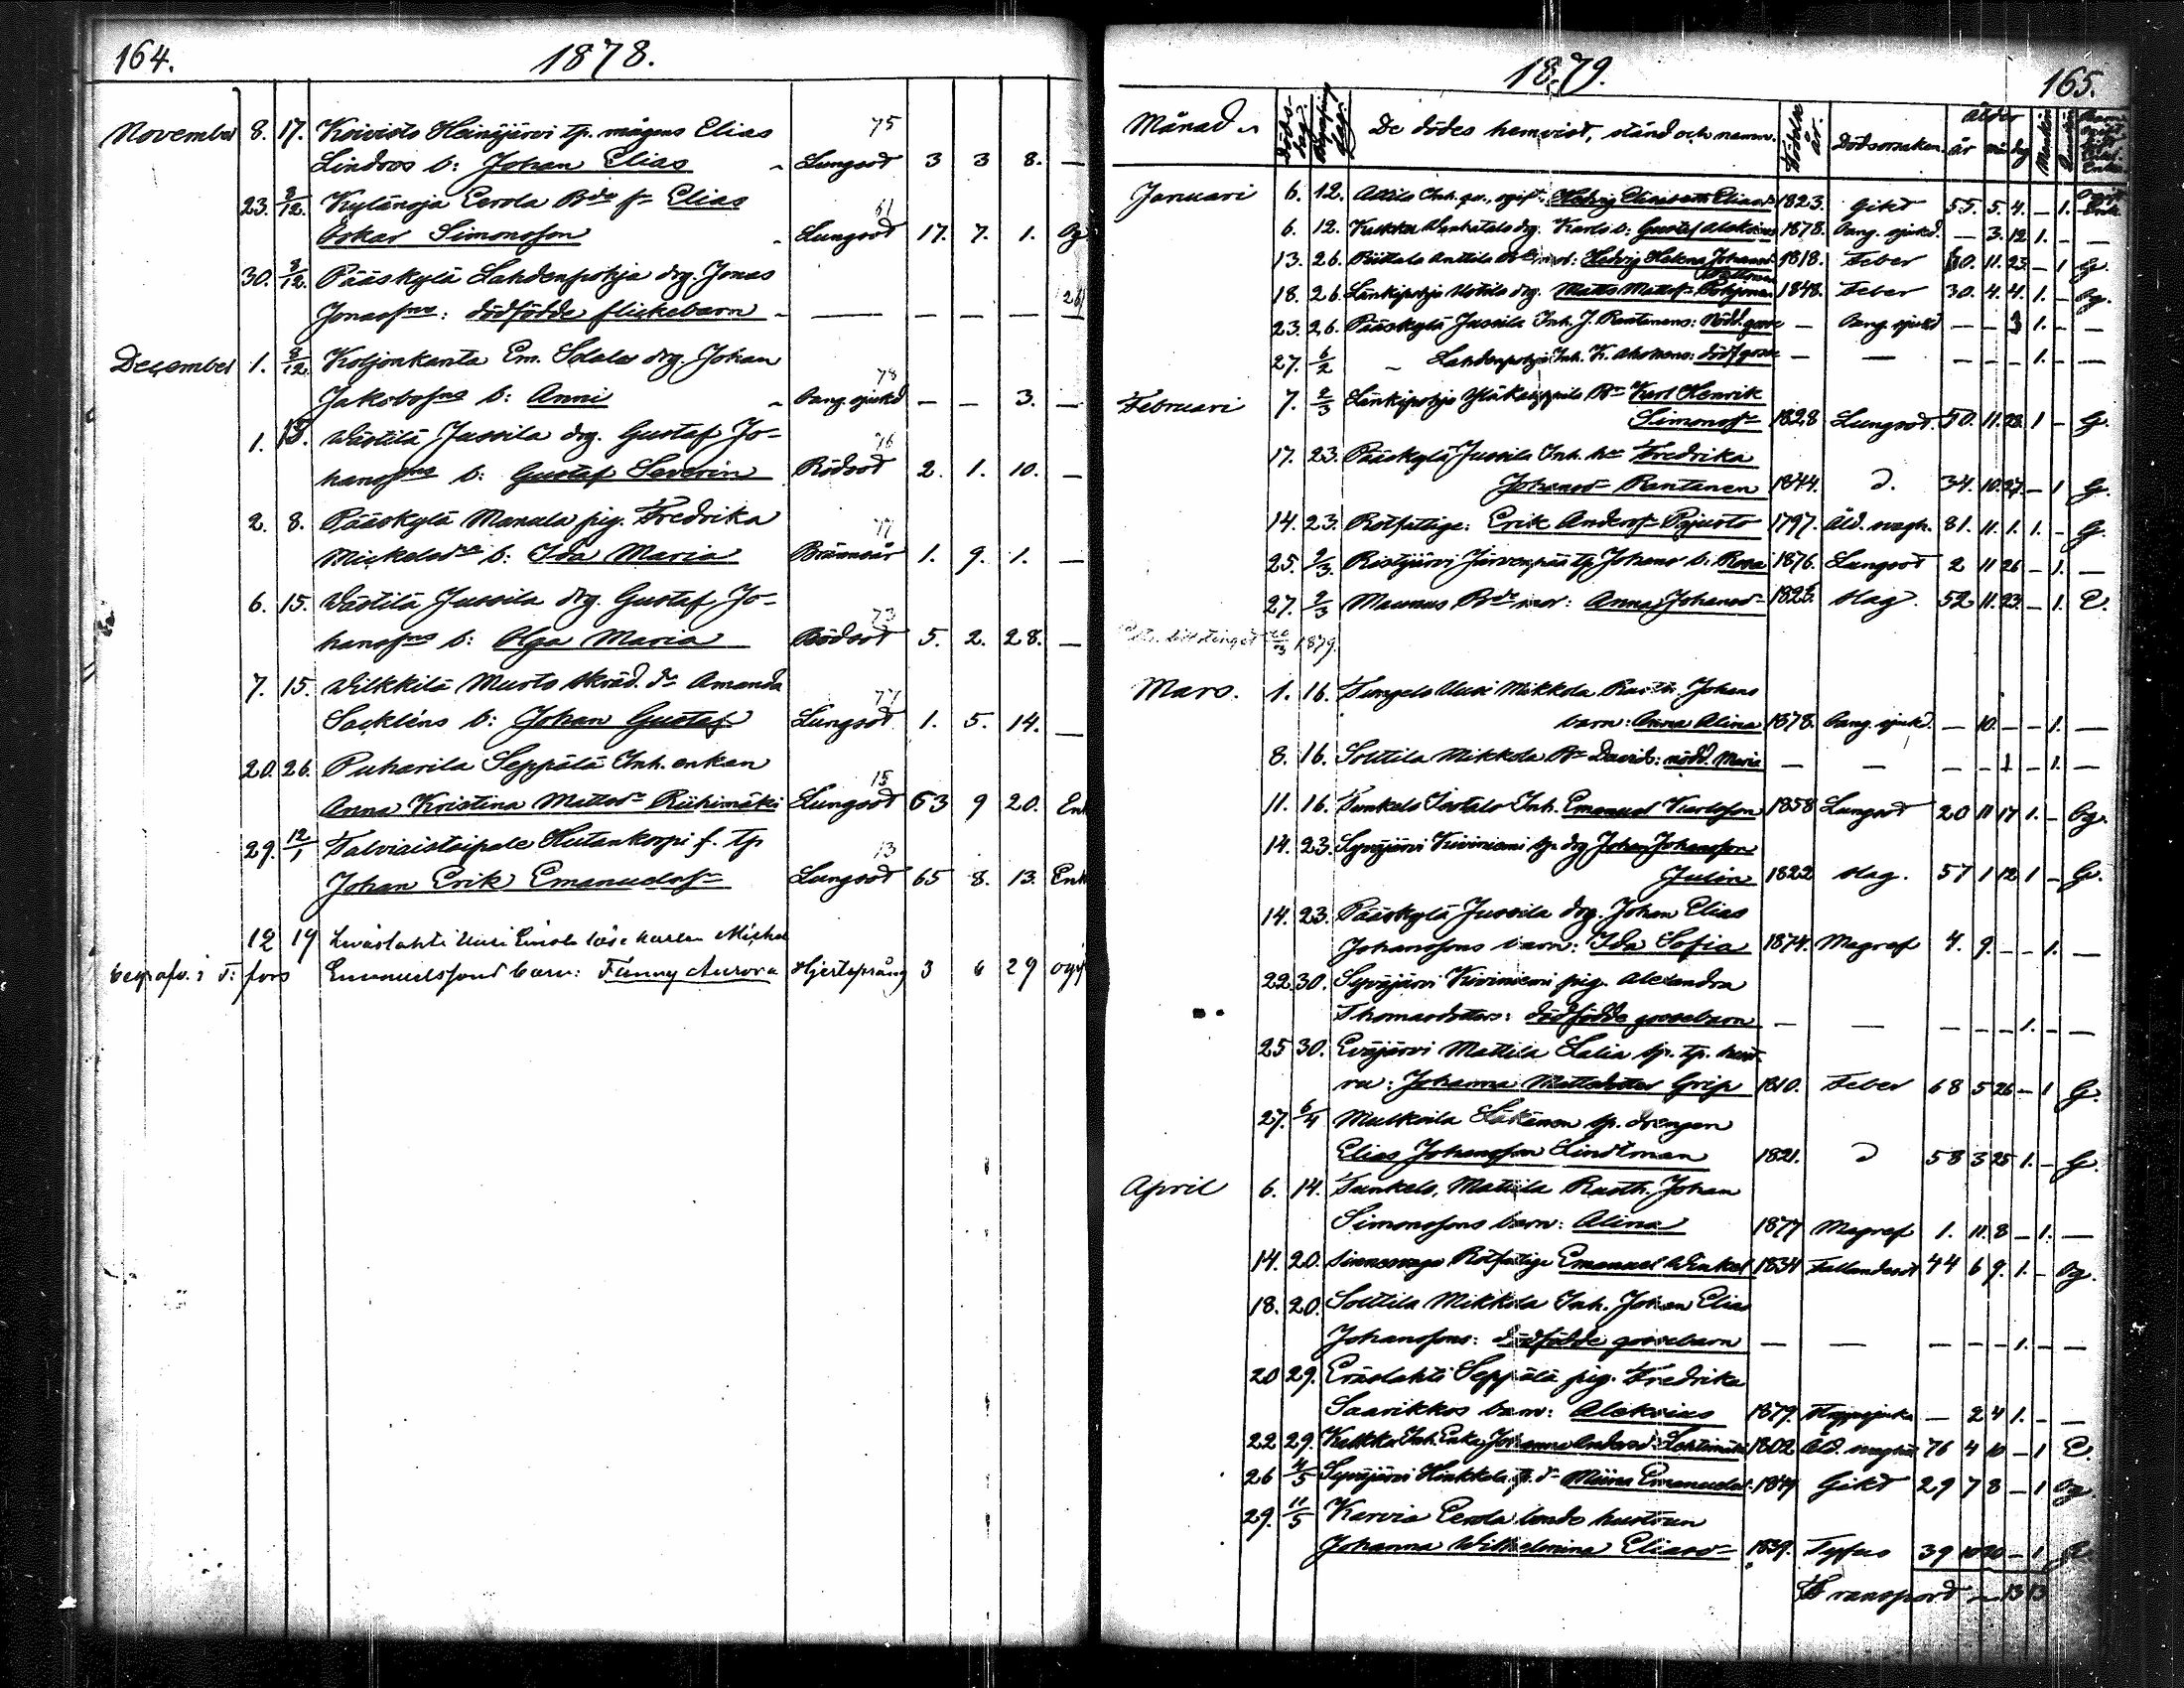 164. 1878.
November 8. 17. Koivisto Heinijärvi tp. mågens Elias 75
Lindroos b: Johan Elias Lungsot 3 3 8. —
23. 8/12. Kylänoja Eerola Bde sn Elias 61
Oskar Simonsson Lungsot 17. 7. 1. Og
30. 8/12. Pääskylä Lahdenpohja drg. Jonas
Jonassons: dödfödde flickebarn — — — —
December 1. 8/12. Koljonkanta Em. Solalas drg. Johan 78
Jakobssns b: Anni Bang. sjukd — — 3. —
1. 15. Västilä Jussila drg. Gustaf Jo- 76
hanssns b: Gustaf Severin Rödsot 2. 1. 10. —
2. 8. Pääskylä Manala pig. Fredrika 77
Mickelsdrs b: Ida Maria Brännsår 1. 9. 1. —
6. 15. Västilä Jussila drg. Gustaf Jo- 73
hanssns b: Olga Maria Rödsot 5. 2. 28. —
7. 15. Vilkkilä Musto skräd. dr Amanda 77
Sackléns b: Johan Gustaf Lungsot 1. 5. 14. —
20. 26. Puharila Seppälä Inh. enkan 15
Anna Kristina Mattsdr Riihimäki Lungsot 63 9 20. Enk
29. 12/1 Talviaistaipale Hietankorpi f. tp 13
Johan Erik Emanuelssn Lungsot 65 8. 13. Enk
12 19 Eräslahti Uusi Einola Michel
begrafv. i T:fors Emanuelssons barn: Fanny Aurora Hjertsprång 3 6 29 ogif
1879. 165.
Månad Döds-dag. Begrafning dag. De dödes hemvist, stånd och namn. Födelse år. Dödsorsaken. ålder år mån dag Mankön Qvinkön
Januari 6. 12. Attila Inh. qv., ogift: Hedvig Elisabeth Eliasdr 1823. Gikt 55. 5. 4. — 1. Ogift
6. 12. Kaukka Wenhatalo drg. Karls b: Gustaf Aleksius 1878. Bang. sjukd. — 3. 12 1. — —
13. 26. Riittala Anttila Bde mor: Hedvig Helena Johansdr 1818. Feber 60. 11. 23. — 1 G.
18. 26. Länkipohja Uotila drg. Matts Mattssn Pohjonen 1848. Feber 30. 4. 4. 1. — Og.
23. 26. Pääskylä Jussila Inh. J. Rantanens: Nödd. gosse — Bang. sjukd — — 3 1. — —
27. 6/2 " Lahdenpohja Inh. K. Ahonens: dödf gosse — — — — — 1. — —
Februari 7. 2/3 Länkipohja Yläkaippila Bn Karl Henrik
Simonssn 1828 Lungsot. 50. 11. 28. 1 — G.
17. 23. Pääskylä Jussila Inh. hu Fredrika
Johansdr Rantanen 1844. D. 34. 10. 27. — 1 G.
14. 23. Rotfattige: Erik Anderssn Pajusto 1797. Åld. svagh. 81. 11. 1. 1. — G.
25. 9/3. Ristijärvi Järvenpää tp Johans b: Rosa 1876. Lungsot 2 11 26 — 1. —
27. 9/3 Maunus Bde mor: Anna Johansdr 1826. Slag. 52 11. 23. — 1. E.
1879.
Mars. 1. 16. Tunkelo Uusi Mikkola Rusth. Johans
barn: Anna Alina 1878. Bang. sjukd. — 10. — — 1. —
8. 16. Solttila Mikkola Bn Davids: nödd. Maria — — — — 1 — 1. —
11. 16. Tunkelo Iso-talo Inh. Emanuel Karlsson 1858 Lungsot 20 11 17 1. — Og.
14. 23. Syväjärvi Kiviniemi sp. drg Johan Johansson
Julin 1822 Slag. 57 1 12 1 — G.
14. 23. Pääskylä Jussila drg. Johan Elias
Johanssons barn: Ida Sofia 1874. Magref 4. 9. — — 1. —
22. 30. Syväjärvi Kiviniemi pig. Alexandra
Thomasdotters: dödfödde gossebarn — — — — — 1. — —
25 30. Eväjärvi Mattila Lalia sp. tp. hust-
ru: Johanna Mattsdotter Grip 1810. Feber 68 5 26 — 1 G.
27. 6/4 Mutkoila Säkänen sp. drengen
Elias Johansson Lindtman 1821. D 58 3 25 1. — G.
April 6. 14. Tunkelo, Mattila Rusth. Johan
Simonssons barn: Alina 1877 Magref 1. 11. 8 — 1. —
14. 20. Sinnessvaga Rotfattige Emanuel Winkel 1834 Fallandesot 44 6 9. 1. — Og.
18. 20. Solttila Mikkola Inh. Johan Elias
Johanssons: dödfödde gossebarn — — — — — 1. — —
20 29. Eräslahti Seppälä pig. Fredrika
Saarikkos barn: Aleksius 1879. — 2 4 1. — —
22 29. Kaukka Inh. Enka Johanna Andersdr Lehtimäki 1802 Åld. svaghet 76 4 10 — 1 E.
26 4/5 Syväjärvi Hinkkola tp. dr Miina Emanuelsdr. 1849 Gikt 29 7 8 — 1 Og.
29. 11/5 Karvia Eerola bonde hustrun
Johanna Wilhelmina Eliasdr 1839. Tyfus 39 10 20 — 1 G.
Transport 13 13